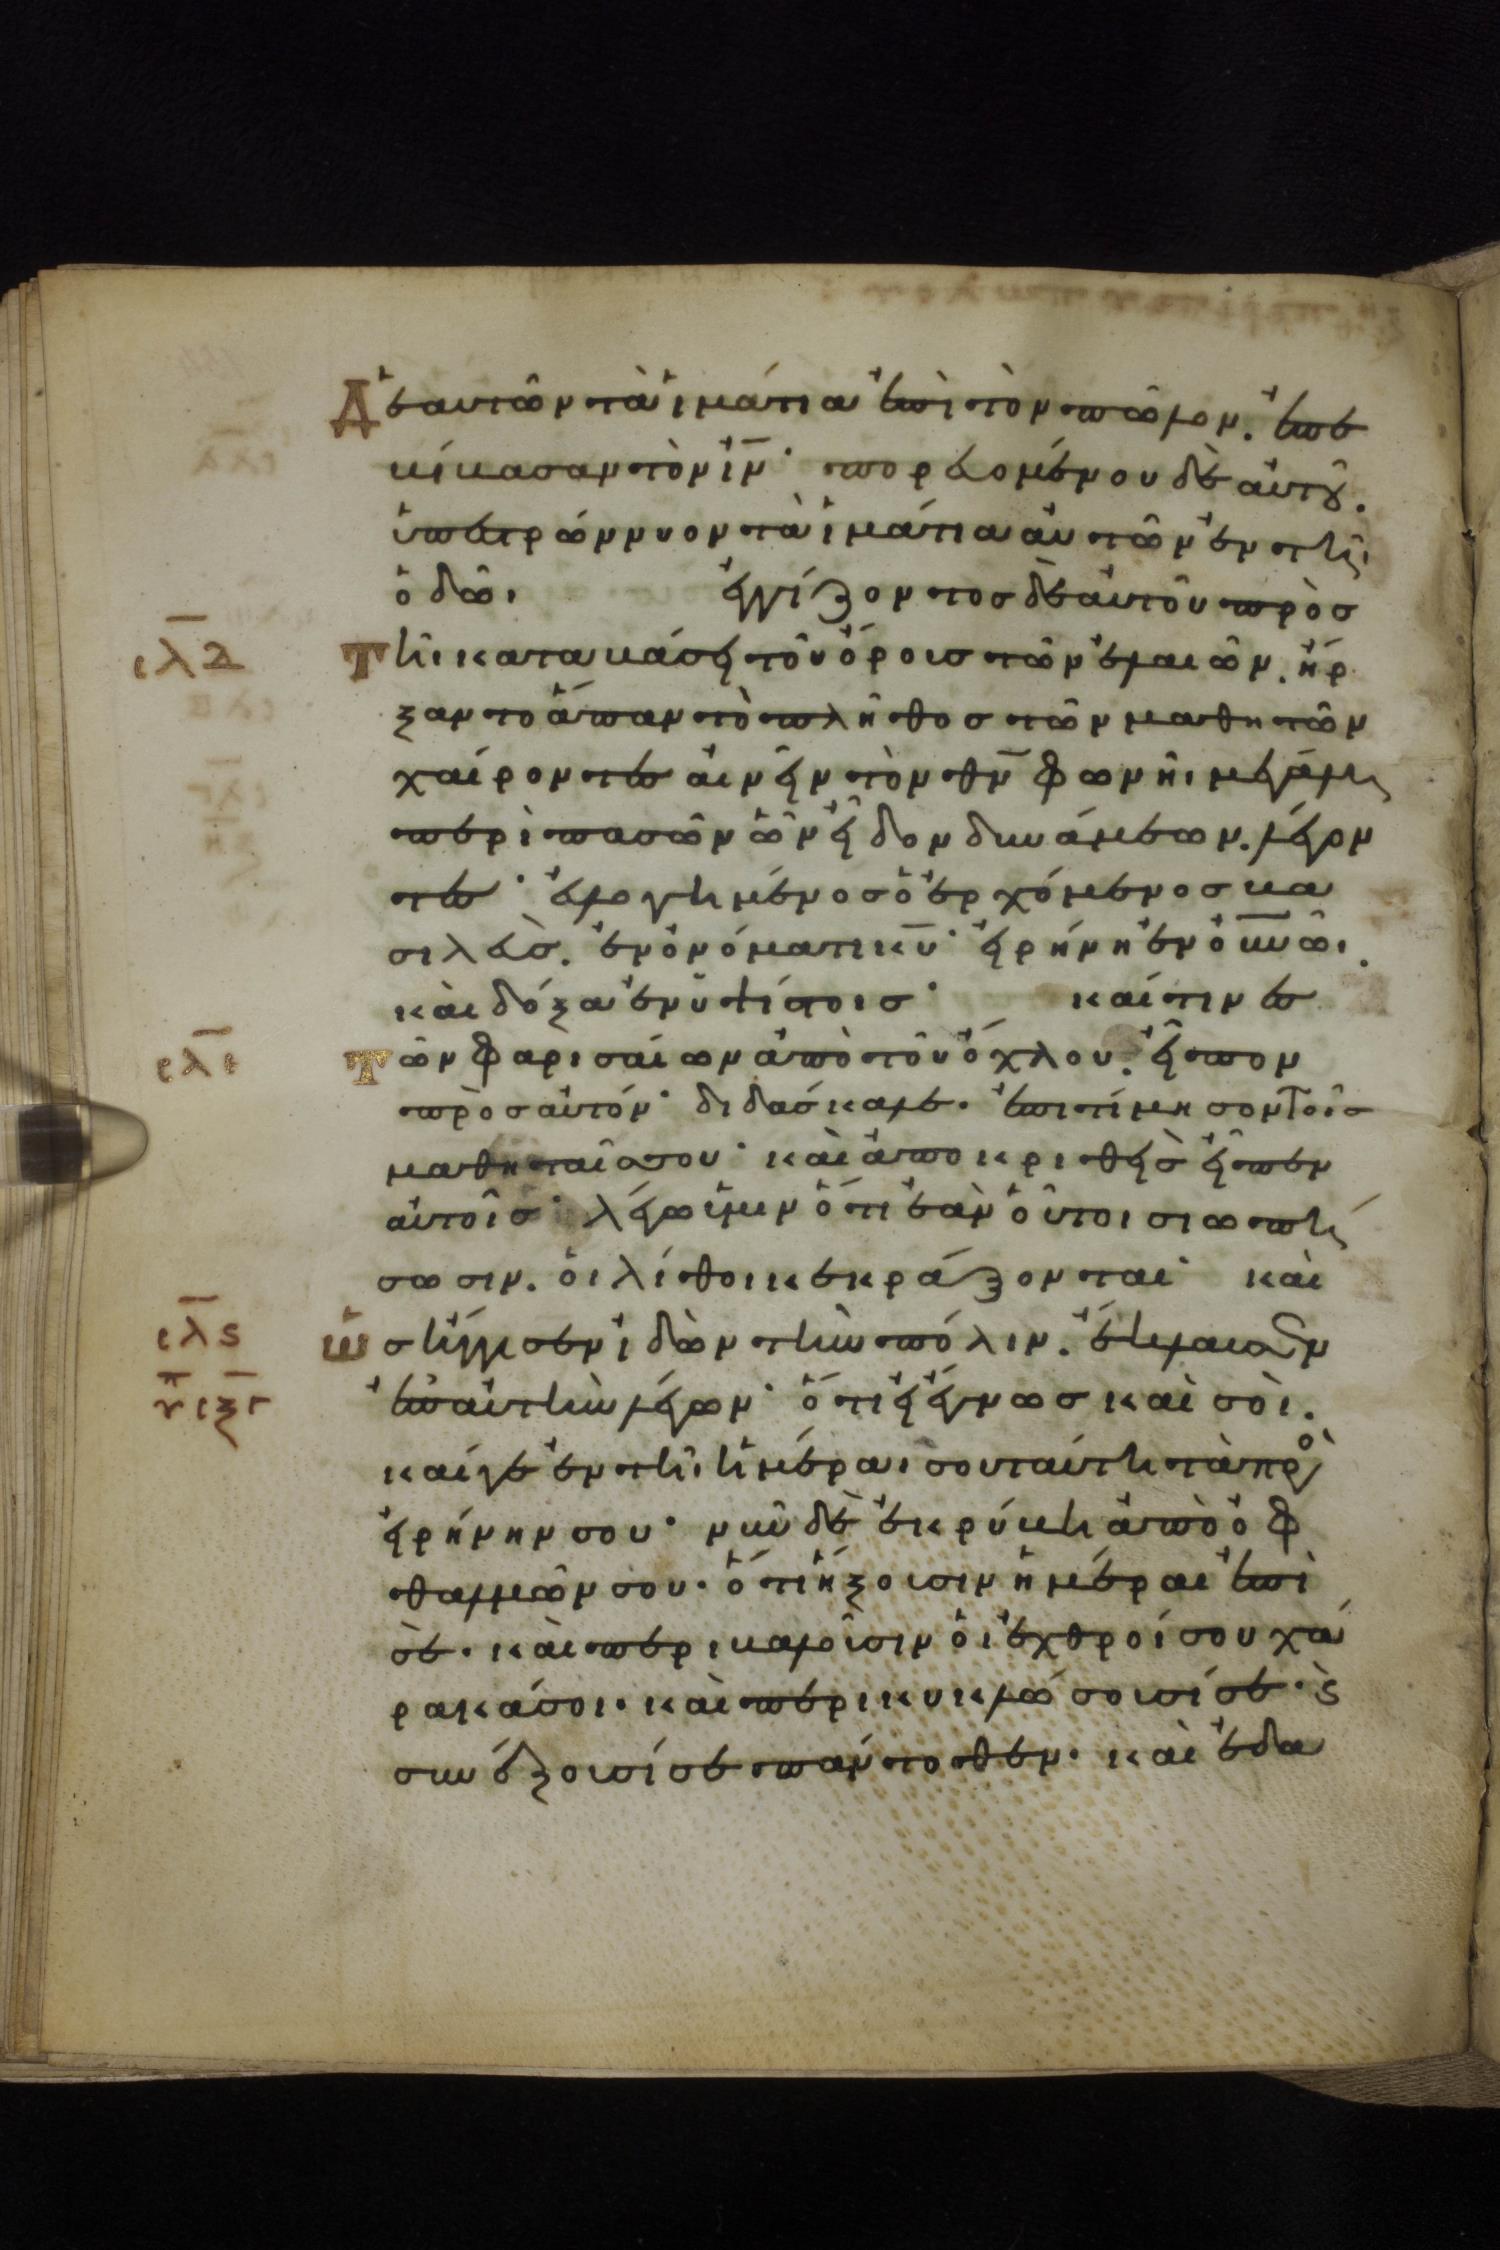 Δὲ αὐτῶν τὰ ἱμάτια ἐπὶ τὸν πῶλον. ἐπε
βίβασαν τὸν ιν̅· πορευομένου δὲ αὐτοῦ.
ὑπεστρώννυον τὰ ἱμάτια αὐτῶν ἐν τῆι
ὁδῶι ἐγγίζοντος δὲ αὐτοῦ πρὸς
σλδ̅ Τῆι καταβάσει τοῦ ὄρους τῶν ἐλαιῶν. ἤρ
ξαντο ἅπαν τὸ πλῆθος τῶν μαθητῶν
χαίροντες αἰνεῖν τὸν θν̅ φωνῆι μεγάλη
περὶ πασῶν ὧν εἶδον δυνάμεων. λέγον
τες· εὐλογημένος ὁ ἐρχόμενος βα
σιλεὺς. ἐν ὀνόματι κυ̅· εἰρήνη ἐν ουνω̅ι.
καὶ δόξα ἐν ὑψίστοις· καί τινες
σλε̅ Τῶν φαρισαίων ἀπὸ τοῦ ὄχλου. εἶπον
πρὸς αὐτόν· διδάσκαλε. ἐπιτίμησον τοῖς
μαθηταῖς σου· καὶ ἀποκριθεὶς εἶπεν
αὐτοῖς· λέγω ὑμῖν ὅτι ἐὰν οὗτοι σιωπή
σωσιν. οἱ λίθοι κεκράξονται· καὶ
σλς̅ Ὡς ἤγγισεν ἰδὼν τὴν πόλιν. ἔκλαυσεν
ἐπ αὐτὴν λέγων· ὅτι εἰ ἔγνως καὶ σὺ.
καί γε ἐν τῆι ἡμέραι σου ταύτη τὰ πρὸ
εἰρήνην σου· νῦν δὲ ἐκρύβη ἀπὸ ὀφ
θαλμῶν σου. ὅτι ἥξουσιν ἡμέραι ἐπὶ
σὲ. καὶ περιβαλοῦσιν οἱ ἐχθροί σου χά
ρακά σοι. καὶ περικυκλώσουσί σε. ϗ
συνέξουσί σε πάντοθεν. καὶ ἐδα